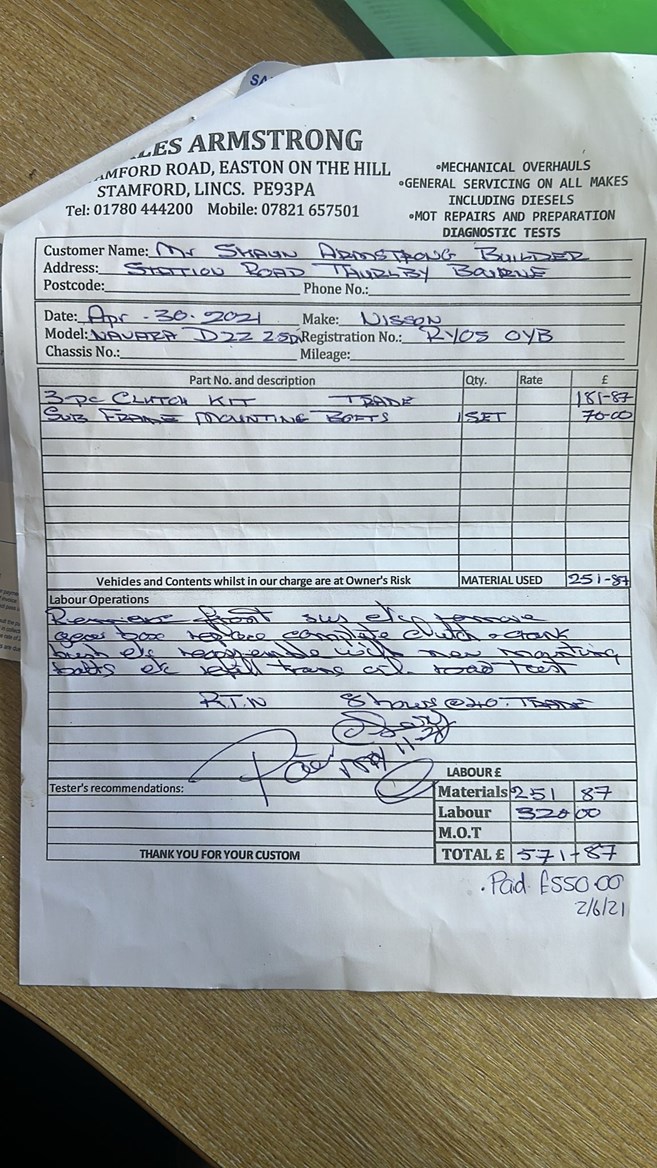 SA
LES ARMSTRONG
AMFORD ROAD, EASTON ON THE HILL
STAMFORD, LINCS. PE93PA
Tel: 01780 444200 Mobile: 07821 657501
•MECHANICAL OVERHAULS
•GENERAL SERVICING ON ALL MAKES
INCLUDING DIESELS
•MOT REPAIRS AND PREPARATION
DIAGNOSTIC TESTS
Customer Name: Mr SHAUN ARMSTRONG BUILDER
Address: STATION ROAD THURLBY BOURNE
Postcode: Phone No.:
Date: Apr - 30. 2021 Make: NISSON
Model: NAVARA D22 2.5D Registration No.: RY05 OYB
Chassis No.: Mileage:
Part No. and description Qty. Rate £
3-pc CLUTCH KIT TRADE 181-87
SUB FRAME MOUNTING BOLTS 1 SET 70-00
Vehicles and Contents whilst in our charge are at Owner's Risk MATERIAL USED 251-87
Labour Operations
Remove front sus etc, remove
gear box replace complete clutch + crank
bush etc reassemble with new mounting
bolts etc refill trans oil. road test
R.T.N 8 hours @ 40. TRADE
LABOUR £
Tester's recommendations:
Materials 251 87
Labour 320 00
M.O.T
TOTAL £ 571-87
THANK YOU FOR YOUR CUSTOM
.Paid £550.00
2/6/21